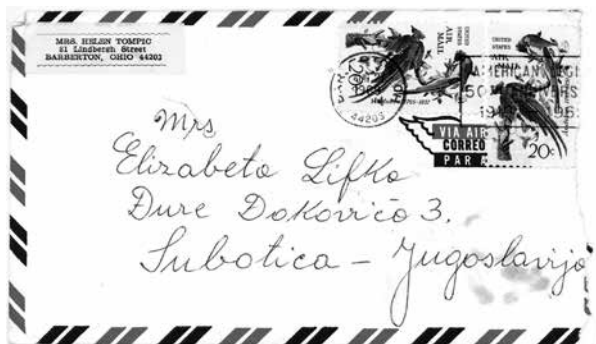 MRS. HELEN TOMPIC
81 Lindbergh Street
BARBERTON, OHIO 44203
UNITED STATES
AIR MAIL
UNITED STATES
AIR
44203
AMERICAN
50
VIA AIR
CORREO
PAR A
20c
Mrs
Elizabeta Lifka
Đure Đakovića 3.
Subotica – Jugoslavija